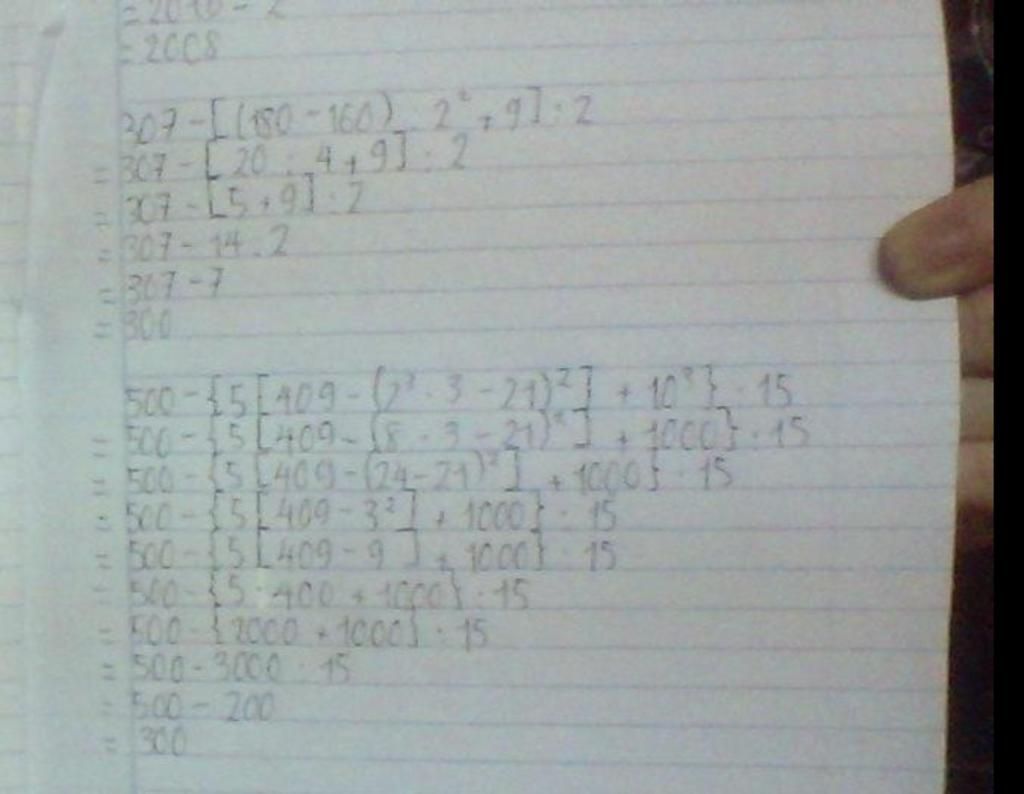 = 2010 - 2
= 2008
307 - [(180 - 160) : 2² + 9] : 2
= 307 - [20 : 4 + 9] : 2
= 307 - [5 + 9] : 2
= 307 - 14 : 2
= 307 - 7
= 300
500 - {5[409 - (2³ · 3 - 21)²] + 10³} : 15
= 500 - {5[409 - (8 · 3 - 21)²] + 1000} : 15
= 500 - {5[409 - (24 - 21)²] + 1000} : 15
= 500 - {5[409 - 3²] + 1000} : 15
= 500 - {5[409 - 9] + 1000} : 15
= 500 - {5 · 400 + 1000} : 15
= 500 - {2000 + 1000} : 15
= 500 - 3000 : 15
= 500 - 200
= 300